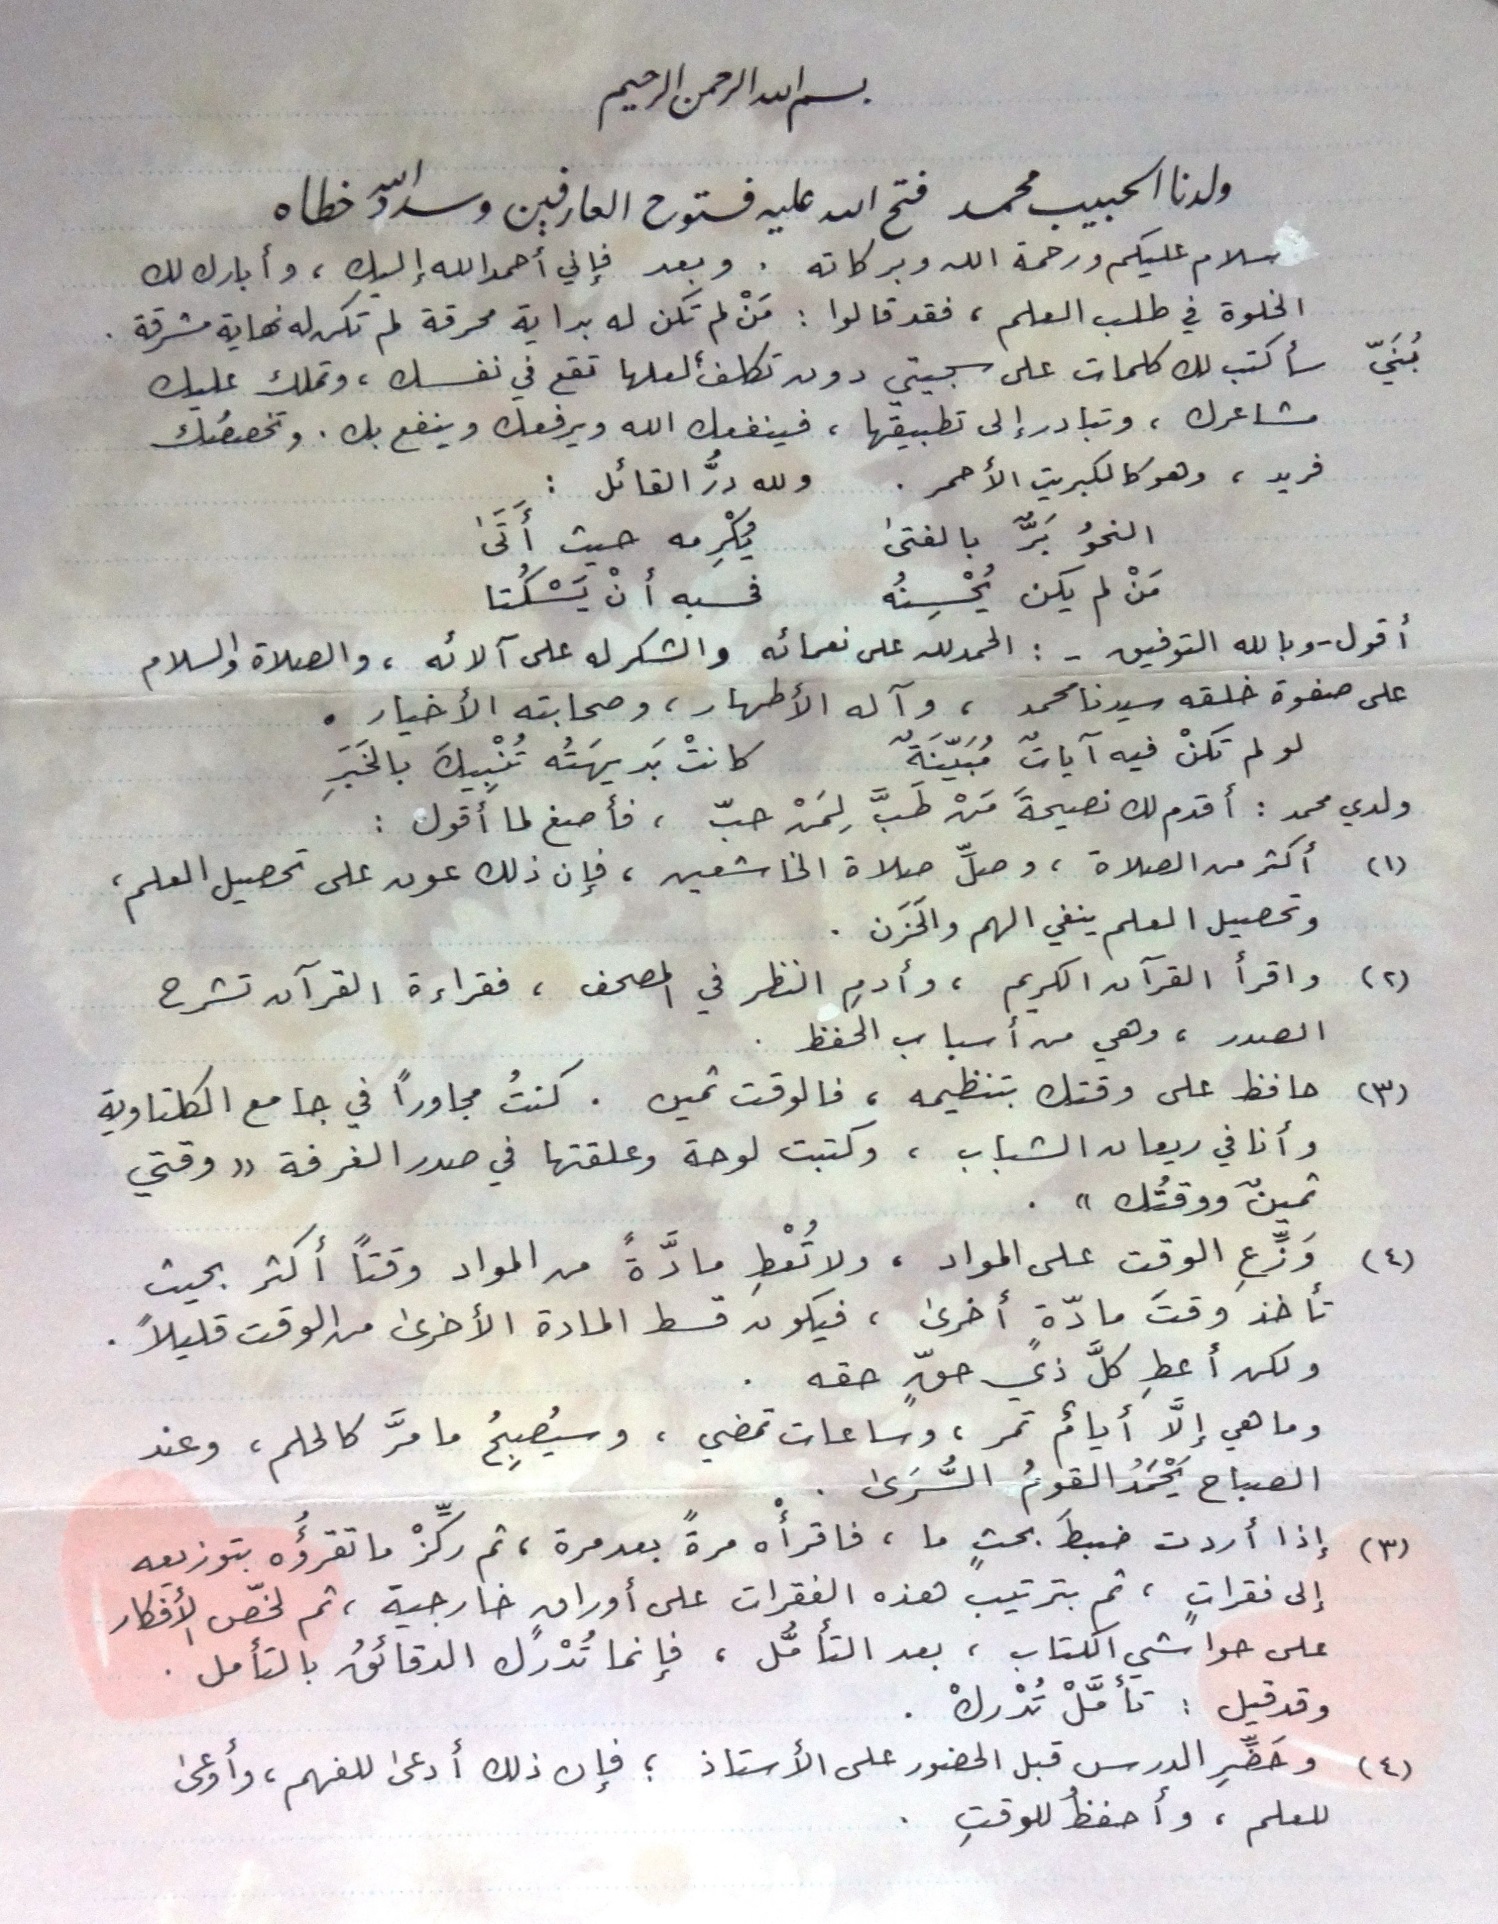 بسم الله الرحمن الرحيم
ولدنا الحبيب محمد فتح الله عليه فتوح العارفين وسدد الله خطاه
سلام عليكم ورحمة الله وبركاته . وبعد فإني أحمد الله إليك ، وأبارك لك
الخلوة في طلب العلم ، فقد قالوا : مَنْ لم تكن له بداية محرقة لم تكن له نهاية مشرقة .
بُنَيّ سأكتب لك كلمات على سجيتي دون تكلف لعلها تقع في نفسك ، وتملك عليك
مشاعرك ، وتبادر إلى تطبيقها ، فينفعك الله ويرفعك وينفع بك . وتخصصُك
فريد ، وهو كالكبريت الأحمر . ولله درُّ القائل :
النحوُ بَرٌّ بالفتىٰ يُكْرِمه حيث أَتَىٰ
مَنْ لم يكن يُحْسِنُه فحسبه أنْ يَسْكُتا
أقول - وبالله التوفيق - : الحمد لله على نعمائه والشكر له على آلائه ، والصلاة والسلام
على صفوة خلقه سيدنا محمد ، وآله الأطهار ، وصحابته الأخيار .
لو لم تكنْ فيه آياتٌ مُبَيِّنَةٌ كانتْ بَديهَتُه تُنْبِيكَ بالخَبَرِ
ولدي محمد : أقدم لك نصيحةَ مَنْ طَبَّ لِمَنْ حبّ ، فأصغ لما أقول :
(١) أكثر من الصلاة ، وصلِّ صلاة الخاشعين ، فإن ذلك عون على تحصيل العلم ،
وتحصيل العلم ينفي الهم والحَزَن .
(٢) واقرأ القرآن الكريم ، وأدمِ النظر في المصحف ، فقراءة القرآن تشرح
الصدر ، وهي من أسباب الحفظ .
(٣) حافظ على وقتك بتنظيمه ، فالوقت ثمين . كنتُ مجاوراً في جامع الكلتاوية
وأنا في ريعان الشباب ، وكتبت لوحة وعلقتها في صدر الغرفة « وقتي
ثمينٌ ووقتُك » .
(٤) وَزِّعِ الوقت على المواد ، ولا تُعْطِ مادَّةً من المواد وقتاً أكثر بحيث
تأخذ وقتَ مادّةٍ أخرىٰ ، فيكون قسط المادة الأخرىٰ من الوقت قليلاً .
ولكن أعطِ كلَّ ذي حقٍّ حقه .
وما هي إلَّا أيامٌ تمر ، وساعات تمضي ، وسيُصبِحُ ما مرَّ كالحلم ، وعند
الصباح يَحْمَدُ القومُ السُّرَىٰ .
(٣) إذا أردت ضبطَ بحثٍ ما ، فاقرأْه مرةً بعد مرة ، ثم ركِّزْ ما تقرؤُه بتوزيعه
إلى فقراتٍ ، ثم بترتيب هذه الفقرات على أوراقٍ خارجية ، ثم لخّص الأفكار
على حواشي الكتاب ، بعد التأمُّل ، فإنما تُدْرَك الدقائقُ بالتأمل .
وقد قيل : تأمَّلْ تُدْركْ .
(٤) وحَضِّرِ الدرس قبل الحضور على الأستاذ ؛ فإن ذلك أدعىٰ للفهم ، وأوعىٰ
للعلم ، وأحفظُ للوقتِ .